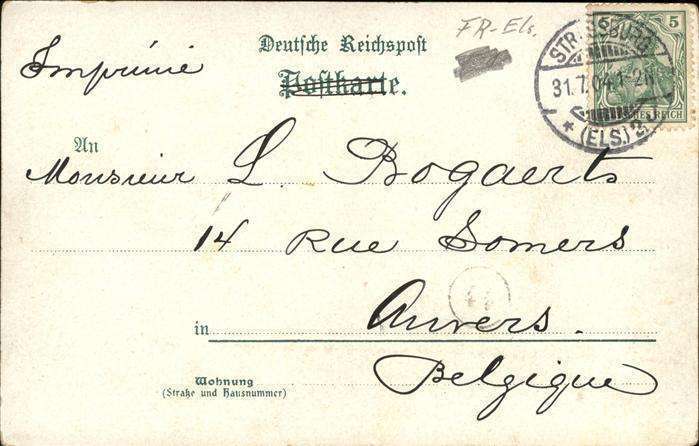 FR-Els.
Deutsche Reichspost
Imprimé
Postkarte.
5
STRASSBURG
31.7.04.1-2N.
* (ELS.) 2
REICH
An
Monsieur L. Bogaerts
14 Rue Somers
in Anvers.
Belgique
Wohnung
(Straße und Hausnummer)